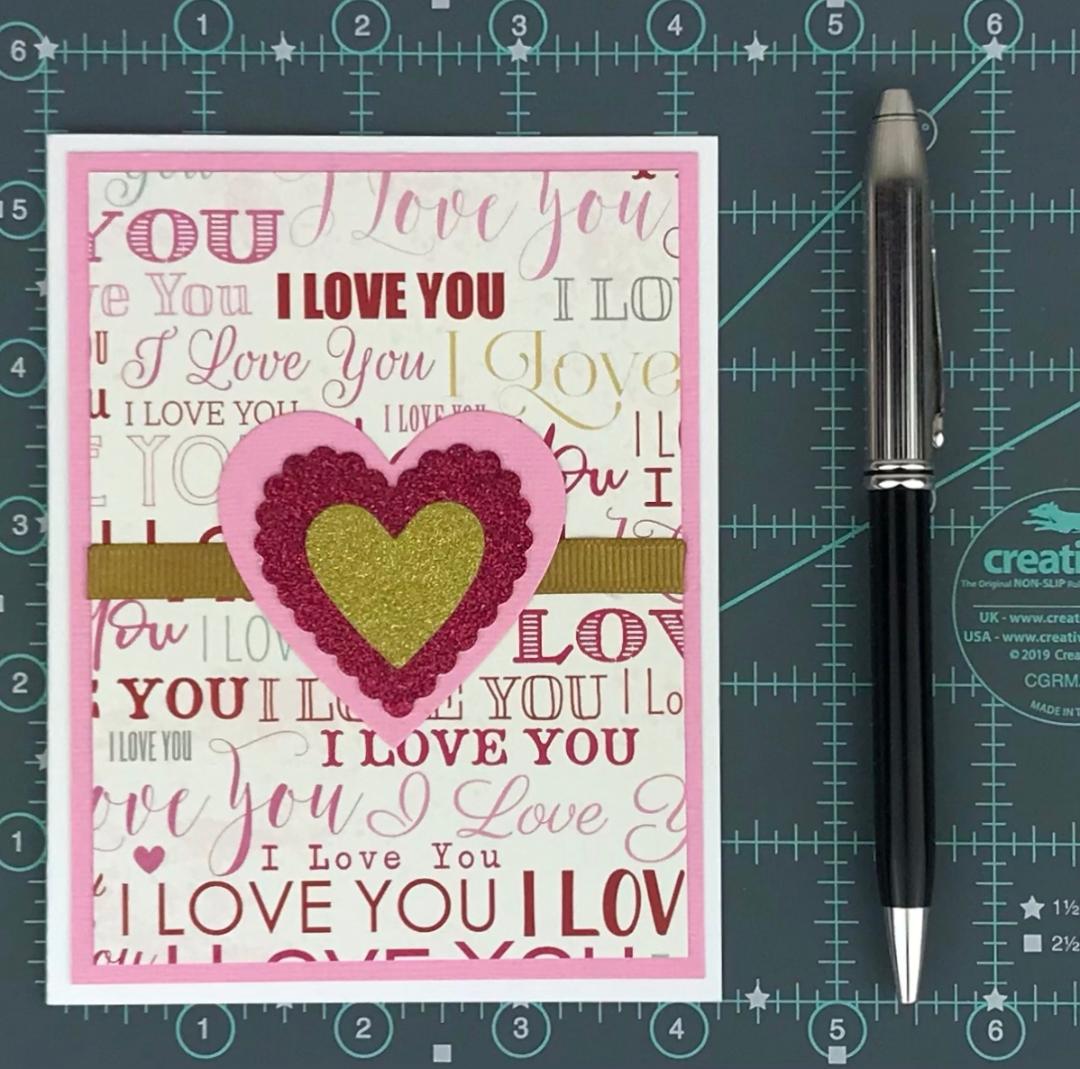 1 2 3 4 5 6
6
You I Love You
YOU
5
ve You I LOVE YOU I LO
U I Love You I Love
4
u I LOVE YOU I LOVE YOU I L
E YO You I
3
creati
The Original NON-SLIP Ru
You I LOV LOV
UK - www.creat
USA - www.creativ
© 2019 Crea
CGRM
MADE IN T
2
E YOU I LOVE YOU I Lo
I LOVE YOU I LOVE YOU
ove You I Love Y
1
I Love You
I LOVE YOU I LOV
1½
2½
ou I LOVE YOU
1 2 3 4 5 6